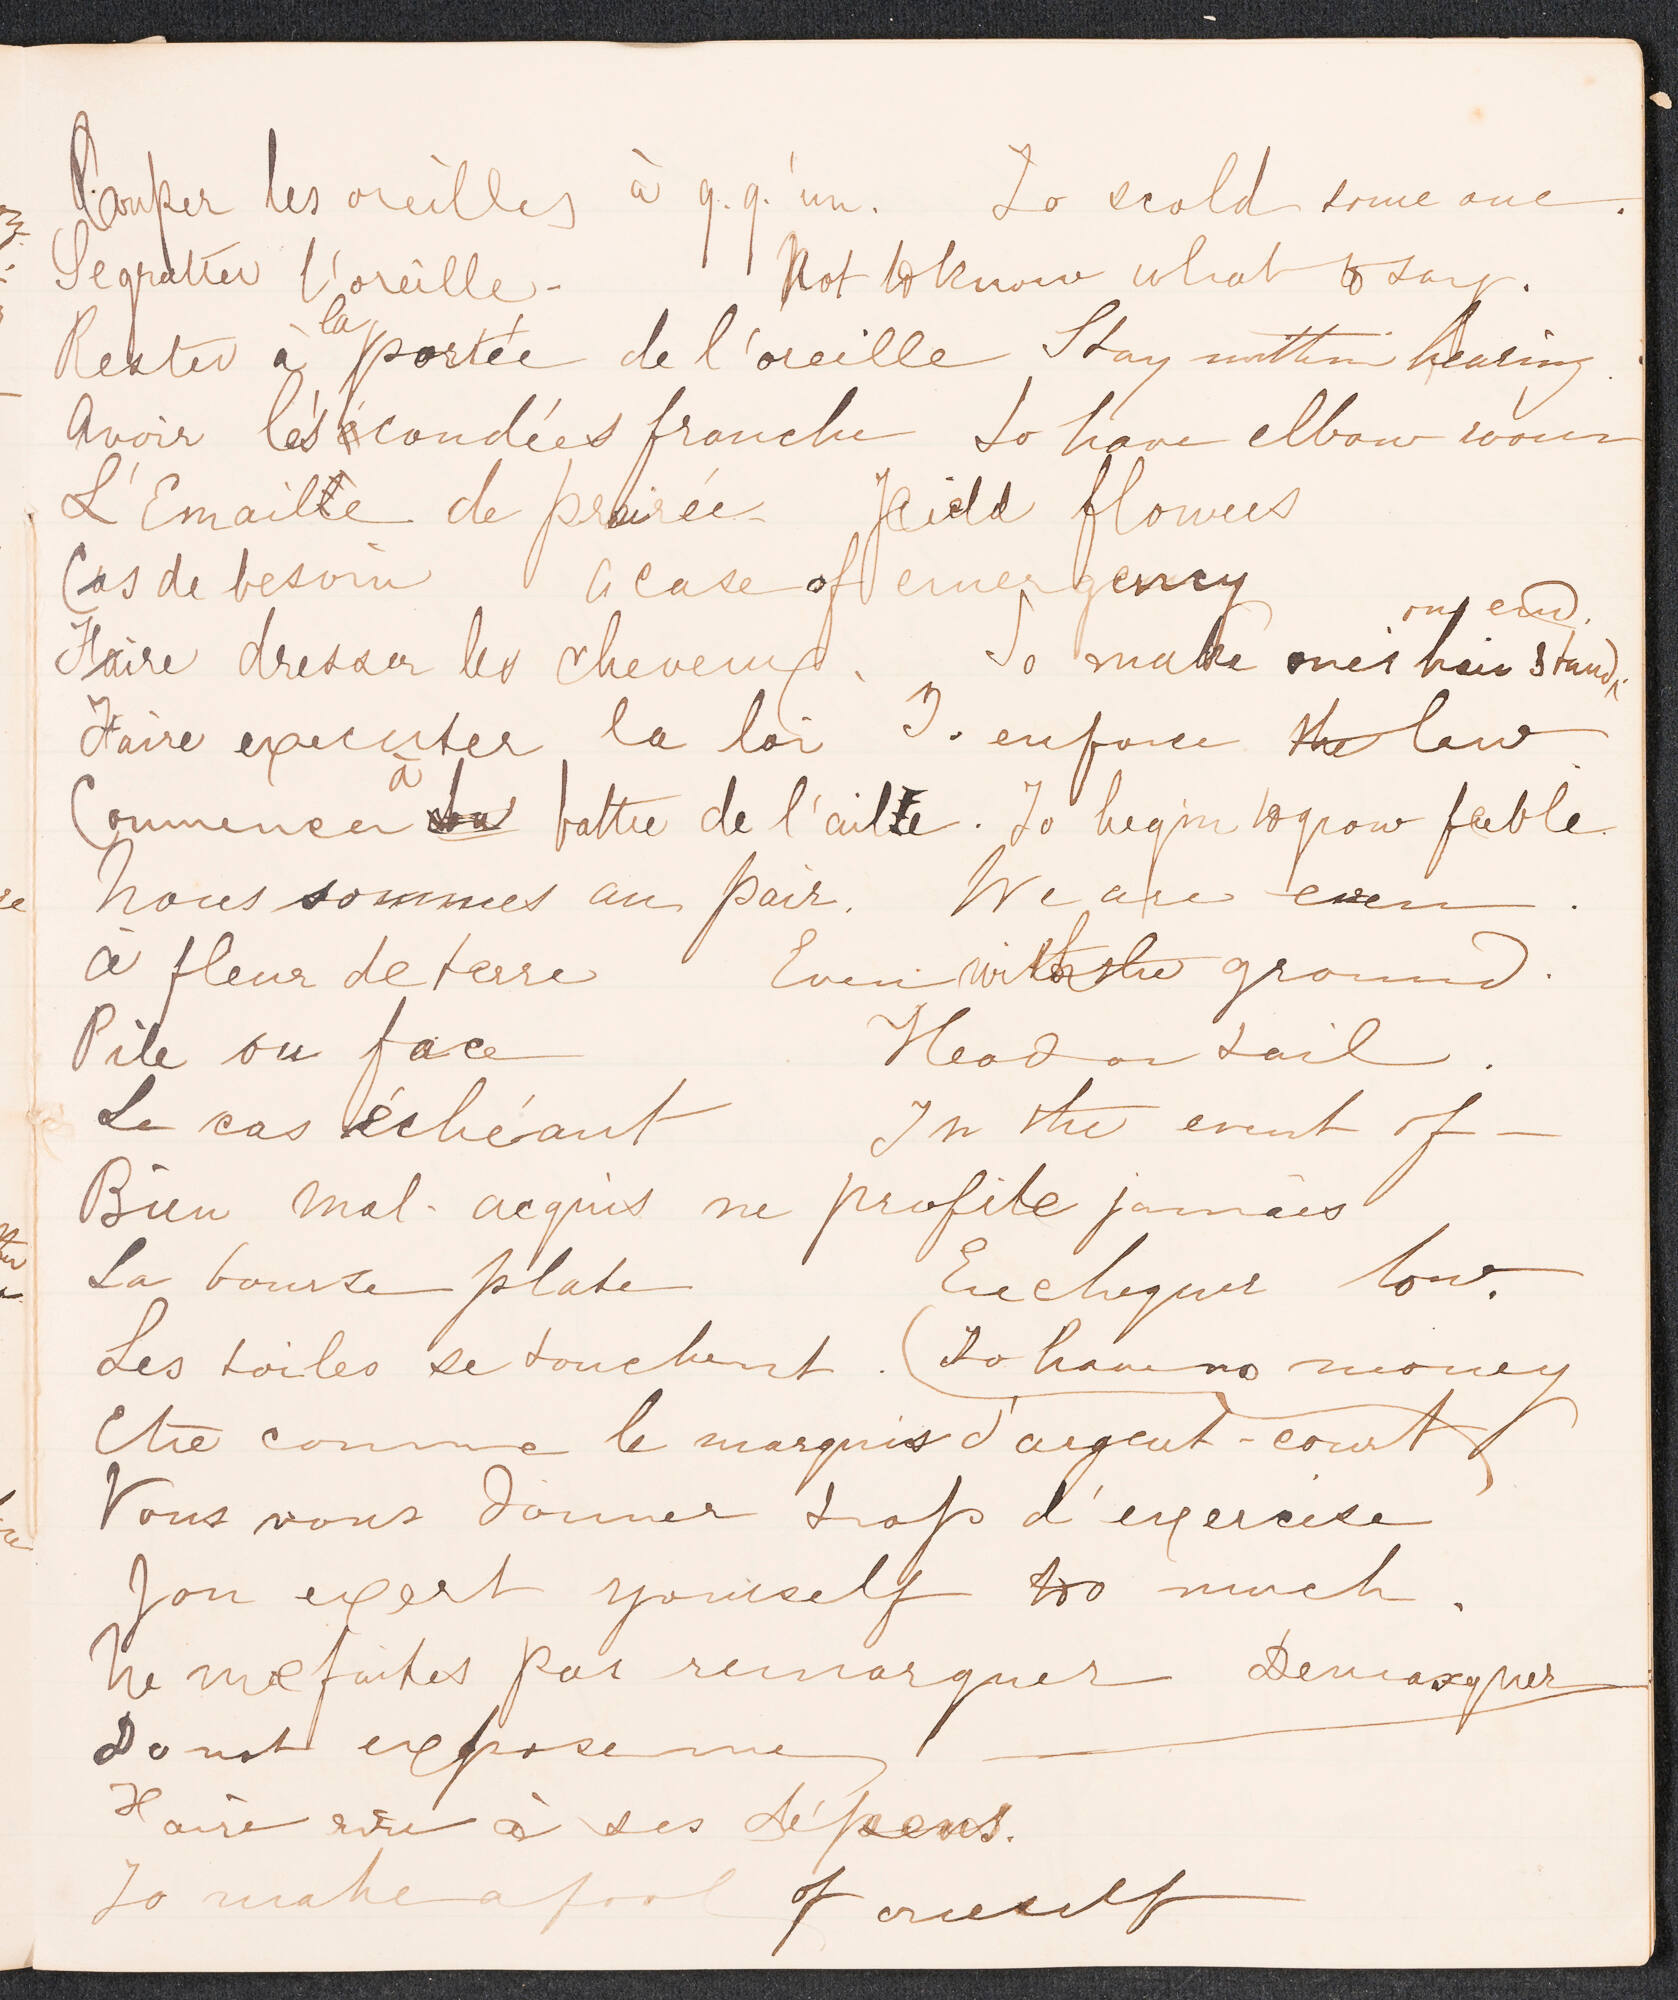 Couper les oreilles à q.q'un. To scold some one.
Se gratter l'oreille - Not to know what to say.
Rester à la portée de l'oreille Stay within hearing.
Avoir les coudées franche to have elbow room
L'Emaille de prairée - Field flowers
Cas de besoin A case of emergency
Faire dresser les cheveux. To make one's hair stand on end.
Faire executer la loi To enforce the law
Commencer à battre de l'aile. To begin to grow feeble.
Nous sommes au pair. We are even.
à fleur de terre Even with the ground.
Pile ou face Head or tail.
Le cas échéant In the event of -
Bien mal-acquis ne profite jamais
La bourse plate Exchequer low.
Les toiles se touchent. (To have no money
Etre comme le marquis d'argent-court)
Vous vous donner trop d'exercise
You exert yourself too much.
Ne me faites pas remarquer Demasquer
Do not expose me
Faire rire à ses dépens.
To make a fool of oneself